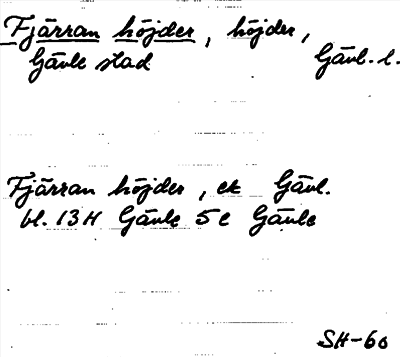 Fjärran höjder, höjder,
Gävle stad Gävl. l.
Fjärran höjder, ek Gävl.
bl. 13 H Gävle 5 c Gävle
SH-60